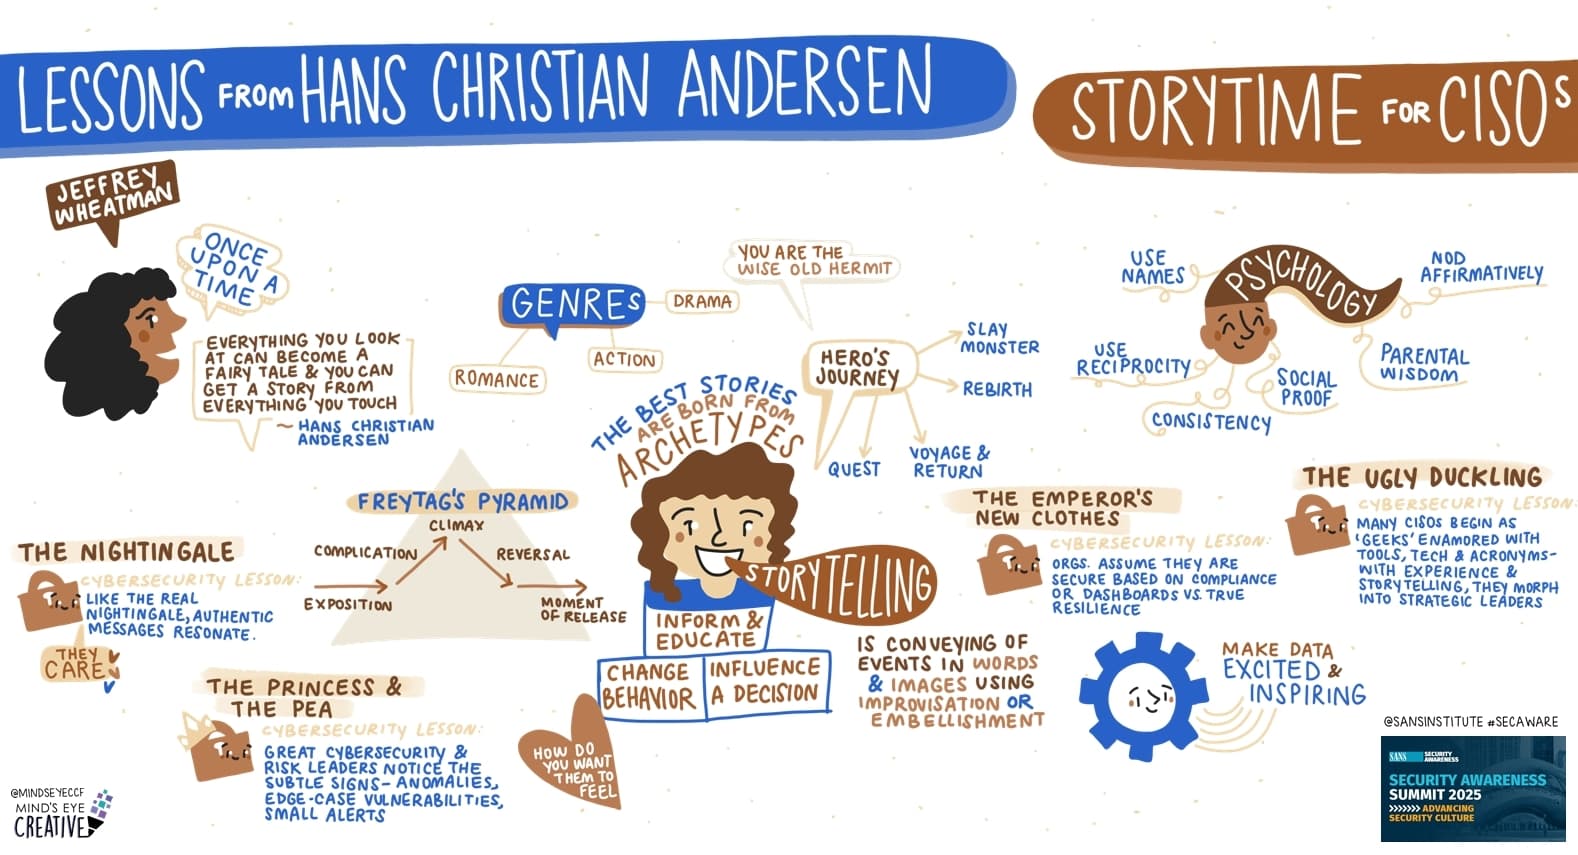 LESSONS FROM HANS CHRISTIAN ANDERSEN
STORYTIME FOR CISOs
JEFFREY
WHEATMAN
ONCE
UPON A
TIME
EVERYTHING YOU LOOK
AT CAN BECOME A
FAIRY TALE & YOU CAN
GET A STORY FROM
EVERYTHING YOU TOUCH
~ HANS CHRISTIAN
ANDERSEN
GENRES
DRAMA
ACTION
ROMANCE
YOU ARE THE
WISE OLD HERMIT
HERO'S
JOURNEY
SLAY
MONSTER
REBIRTH
VOYAGE &
RETURN
QUEST
PSYCHOLOGY
USE
NAMES
NOD
AFFIRMATIVELY
USE
RECIPROCITY
PARENTAL
WISDOM
SOCIAL
PROOF
CONSISTENCY
THE BEST STORIES
ARE BORN FROM
ARCHETYPES
FREYTAG'S PYRAMID
CLIMAX
COMPLICATION
REVERSAL
EXPOSITION
MOMENT
OF RELEASE
THE NIGHTINGALE
CYBERSECURITY LESSON:
LIKE THE REAL
NIGHTINGALE, AUTHENTIC
MESSAGES RESONATE.
THEY
CARE
THE PRINCESS &
THE PEA
CYBERSECURITY LESSON:
GREAT CYBERSECURITY &
RISK LEADERS NOTICE THE
SUBTLE SIGNS- ANOMALIES,
EDGE-CASE VULNERABILITIES,
SMALL ALERTS
HOW DO
YOU WANT
THEM TO
FEEL
STORYTELLING
INFORM &
EDUCATE
CHANGE
BEHAVIOR
INFLUENCE
A DECISION
IS CONVEYING OF
EVENTS IN WORDS
& IMAGES USING
IMPROVISATION OR
EMBELLISHMENT
THE EMPEROR'S
NEW CLOTHES
CYBERSECURITY LESSON:
ORGS. ASSUME THEY ARE
SECURE BASED ON COMPLIANCE
OR DASHBOARDS VS. TRUE
RESILIENCE
THE UGLY DUCKLING
CYBERSECURITY LESSON:
MANY CISOS BEGIN AS
'GEEKS' ENAMORED WITH
TOOLS, TECH & ACRONYMS-
WITH EXPERIENCE &
STORYTELLING, THEY MORPH
INTO STRATEGIC LEADERS
MAKE DATA
EXCITED &
INSPIRING
@SANSINSTITUTE #SECAWARE
SANS SECURITY
AWARENESS
SECURITY AWARENESS
SUMMIT 2025
»»»» ADVANCING
SECURITY CULTURE
@MINDSEYECCF
MIND'S EYE
CREATIVE